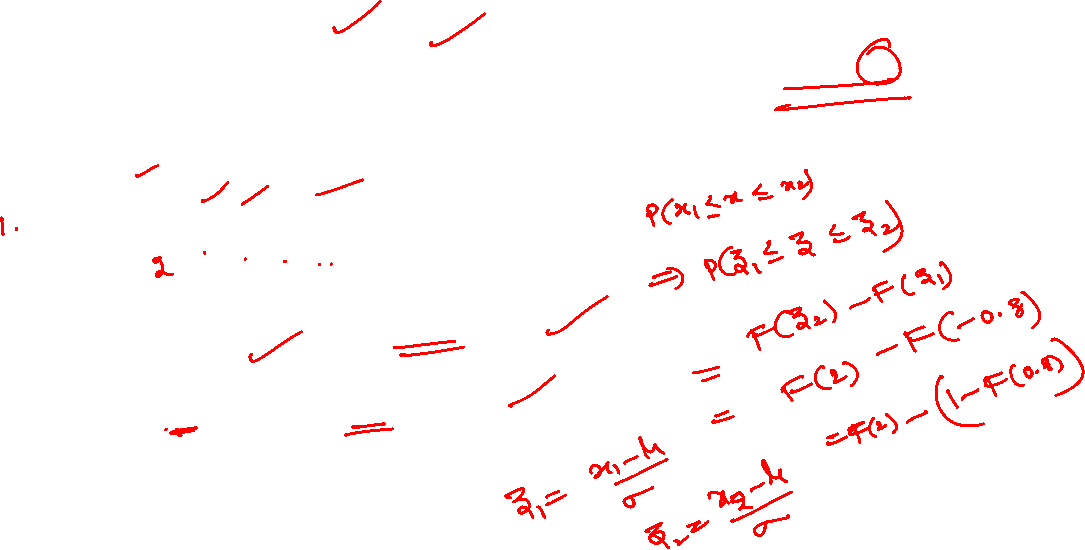 1.
2 . . . . .
P(x₁ ≤ x ≤ x₂)
⇒ P(z₁ ≤ z ≤ z₂)
= F(z₂) - F(z₁)
= F(2) - F(-0.8)
= F(2) - (1 - F(0.8))
z₁ = (x₁ - μ)/σ
z₂ = (x₂ - μ)/σ